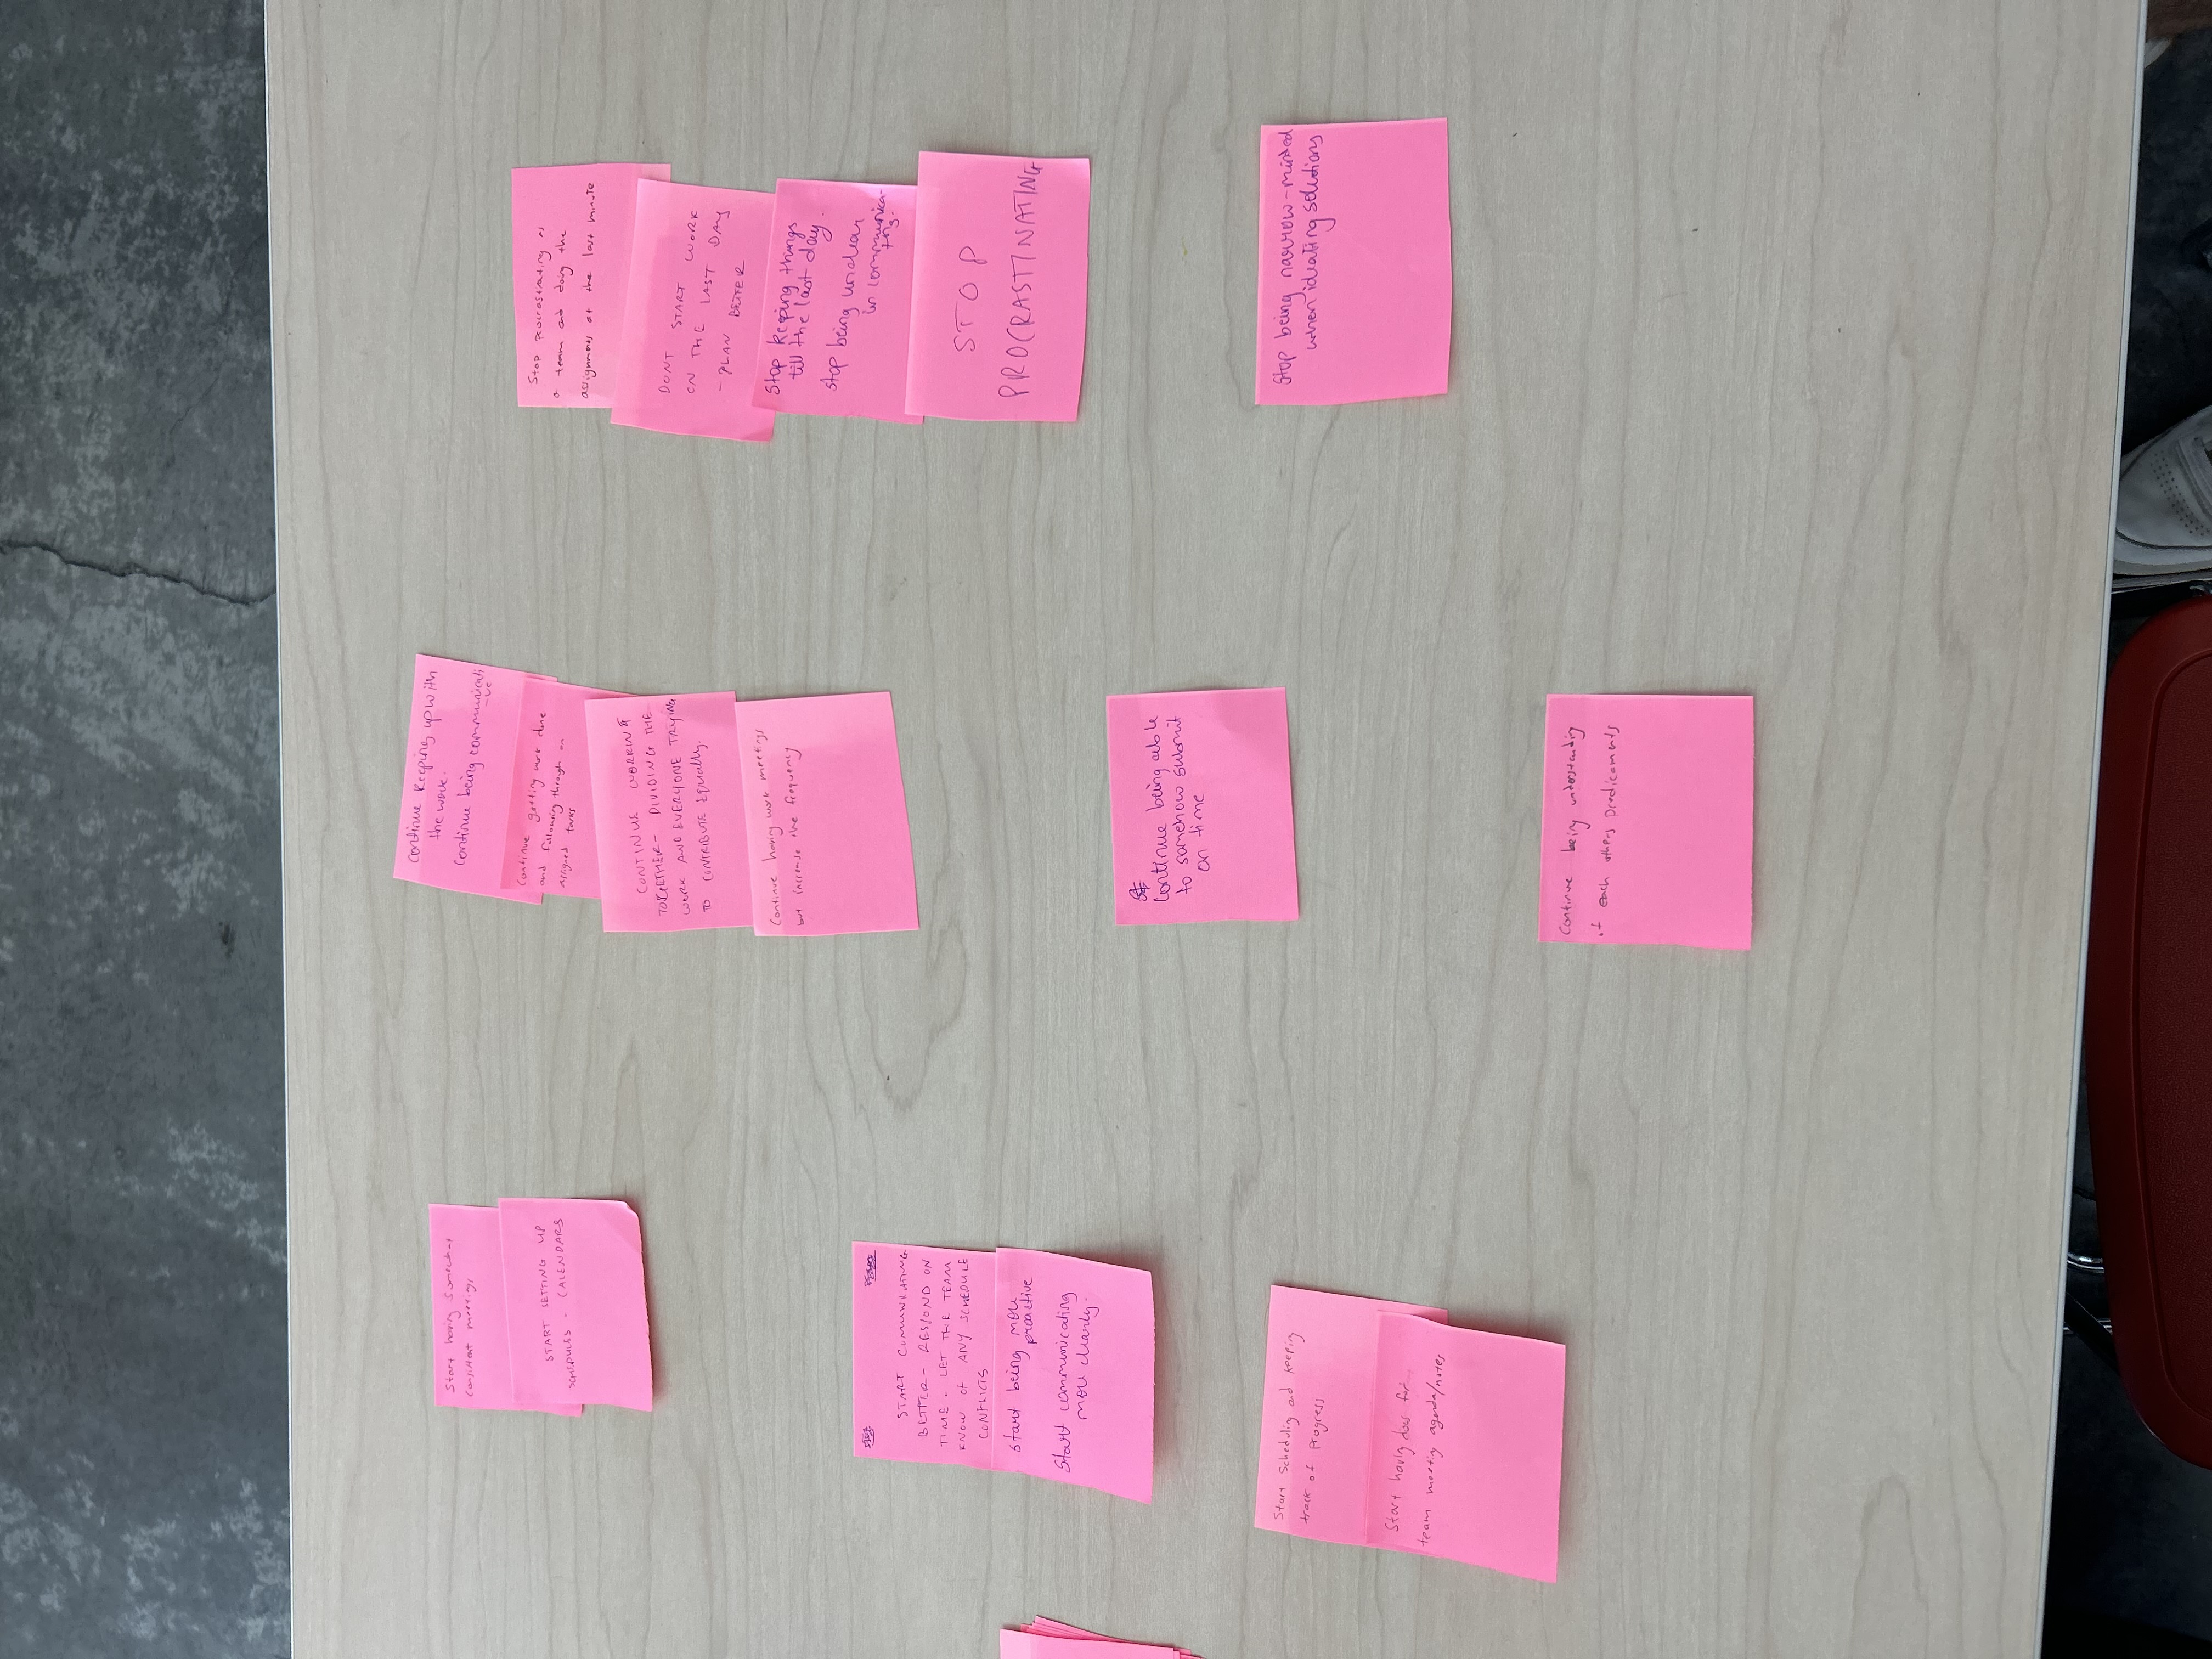 Start having Somewhat
consistent meetings
START SETTING UP
SCHEDULES - CALENDARS
START COMMUNICATING
BETTER- RESPOND ON
TIME - LET THE TEAM
KNOW OF ANY SCHEDULE
CONFLICTS
Start being more
proactive
Start communicating
more clearly.
Start Scheduling and keeping
track of Progress
Start having docs for
team meeting agenda/notes
Continue keeping up with
the work.
Continue being communicati
-ve
Continue getting work done
and following through on
assigned tasks
CONTINUE WORKING
TOGETHER- DIVIDING THE
WORK AND EVERYONE TRYING
TO CONTRIBUTE Equally.
Continue having work meetings
but increase the frequency
Continue being able
to somehow submit
on time
Continue being understanding
of each others predicaments
Stop procrastinating as
a team and doing the
assignments at the last minute
DONT START WORK
ON THE LAST DAY
- PLAN BETTER
Stop keeping things
till the last day.
Stop being unclear
in communica-
STOP
PROCRASTINATING
Stop being narrow-minded
when ideating solutions